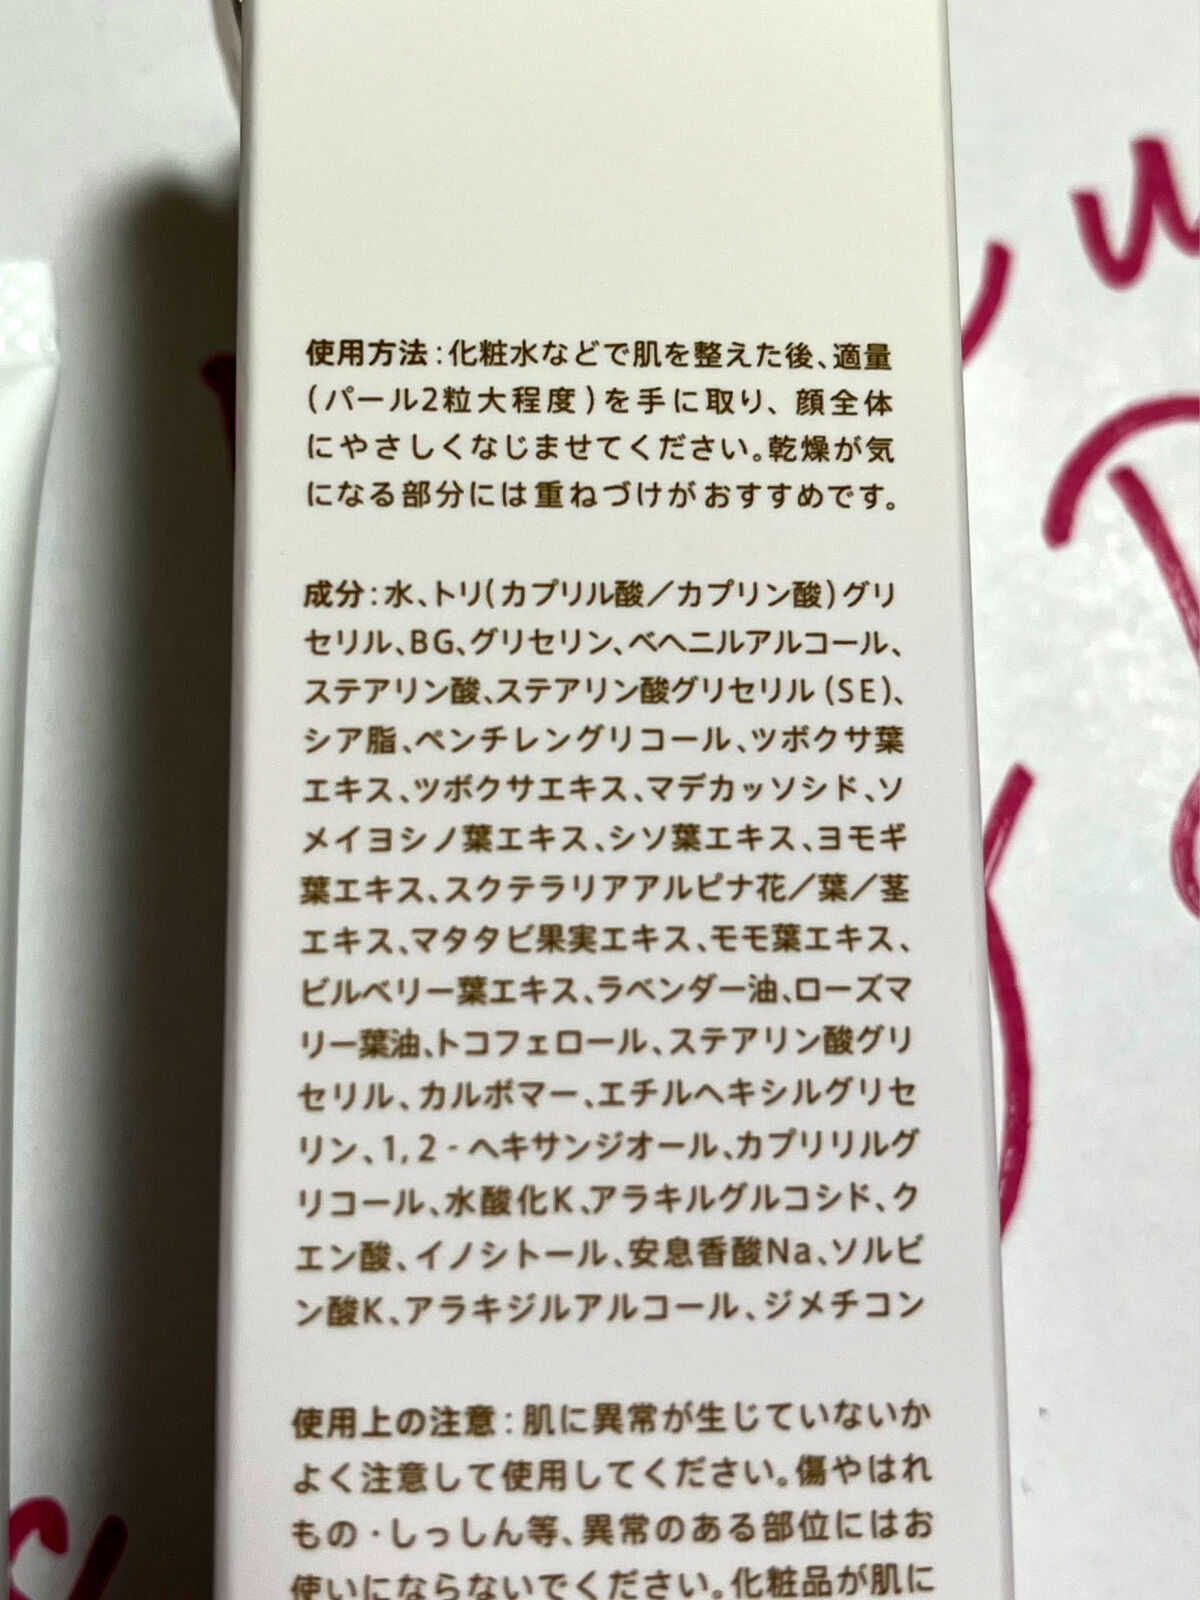 使用方法:化粧水などで肌を整えた後、適量
(パール2粒大程度)を手に取り、顔全体
にやさしくなじませてください。乾燥が気
になる部分には重ねづけがおすすめです。
成分:水、トリ(カプリル酸／カプリン酸)グリ
セリル、BG、グリセリン、ベヘニルアルコール、
ステアリン酸、ステアリン酸グリセリル(SE)、
シア脂、ペンチレングリコール、ツボクサ葉
エキス、ツボクサエキス、マデカッソシド、ソ
メイヨシノ葉エキス、シソ葉エキス、ヨモギ
葉エキス、スクテラリアアルピナ花／葉／茎
エキス、マタタビ果実エキス、モモ葉エキス、
ビルベリー葉エキス、ラベンダー油、ローズマ
リー葉油、トコフェロール、ステアリン酸グリ
セリル、カルボマー、エチルヘキシルグリセ
リン、1,2-ヘキサンジオール、カプリリルグ
リコール、水酸化K、アラキルグルコシド、ク
エン酸、イノシトール、安息香酸Na、ソルビ
ン酸K、アラキジルアルコール、ジメチコン
使用上の注意:肌に異常が生じていないか
よく注意して使用してください。傷やはれ
もの・しっしん等、異常のある部位にはお
使いにならないでください。化粧品が肌に